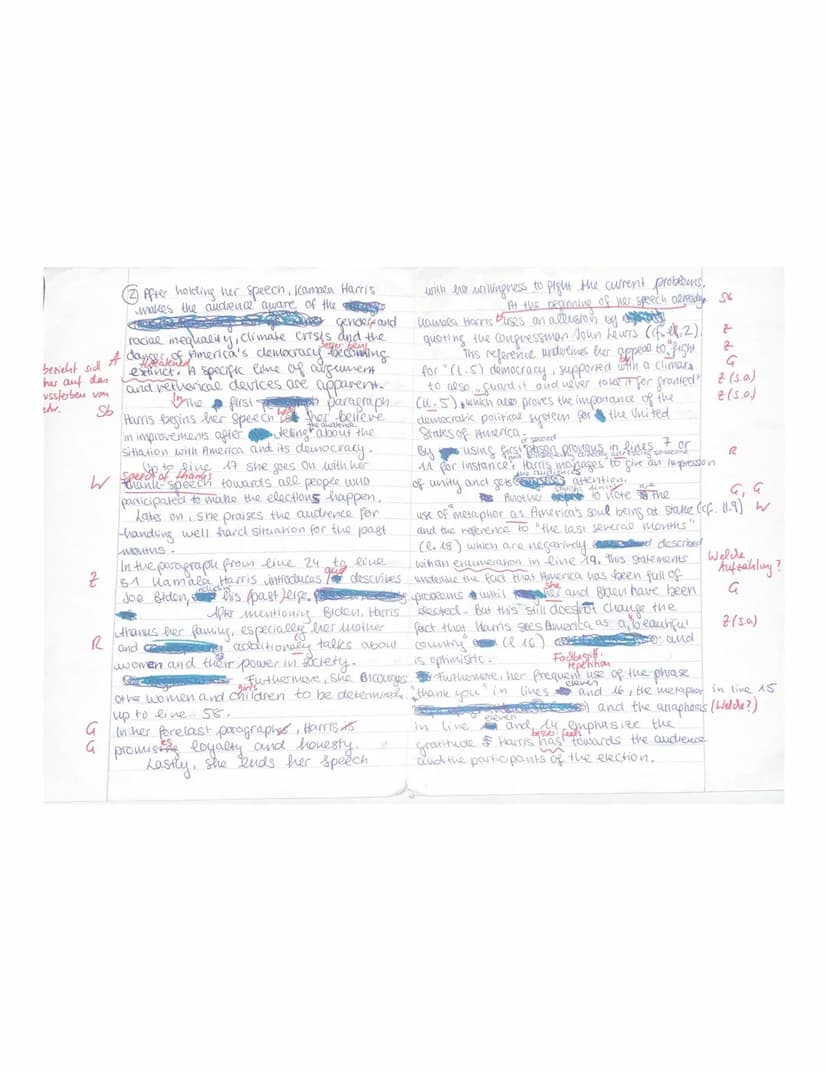 ② After holding her speech, Kamala Harris
makes the audience aware of the
gender and
racial inequality, climate crisis and the
besser: being
danger of America's democracy becoming
threatened
extinct. A specific line of argument
and rethorical devices are apparent.
In the first paragraph
Harris begins her speech with her believe
the audience
in improvements after telling about the
sitiation with America and its democracy.
Up to line 17 she goes on with her
speech of thanks
thank-speech towards all people who
participated to make the elections happen.
Later on, she praises the audience for
handling well hard situation for the past
months.
In the paragraph from line 24 to line
51 Kamala Harris introduces and describes
Joe Biden, his past life.
After mentioning Biden, Harris
thanks her family, especially her mother
and additionaly talks about
women and their power in society.
Furthermore, she encourages
girls
othe women and children to be determined
up to line 58.
In her forelast paragraphs, Harris is
promising loyalty and honesty.
Lastly, she ends her speech
bezieht sich
her auf das
ussterben von
A
Sb
W
Z
R
G
G
with her willingness to fight the current problems.
At the beginning of her speech already
Kamala Harris uses an allusion by
quoting the congressman John Lewis (cf. ll. 2).
This reference underlines her appeal to "fight
for" (l. 5) democracy, supported with a climax
to also "guard it and never take it for granted"
(ll. 5), which also proves the importance of the
democratic political system for the United
States of America.
or second
By using first person pronous in lines 7 or
11 for instance, Harris manages to give an impression
the audience's
of unity and gets attention.
Another to note is the
use of metaphor as America's soul being at stake (cf. ll. 9)
and the reference to "the last several months"
(l. 18) which are negatively described
with an enumeration in line 19. This statements
underline the fact that America has been full of
she
problems until her and Biden have been
elected. But this still does not change the
fact that Harris sees America as a "beautiful
country" (l. 16) and
is optimistic.
Fachbegriff: repetition
Furthermore, her frequent use of the phrase
eleven
"thank you" in lines and 16, the metaphor in line 15
and the anaphora (Welche?)
eleven
in line and 14 emphasize the
besser: feels
gratitude Harris has towards the audience
and the participants of the election.
Sb
Z
Z
G
Z (s.o.)
Z (s.o.)
R
G, G
W
Welche
Aufzählung?
G
Z (s.o.)